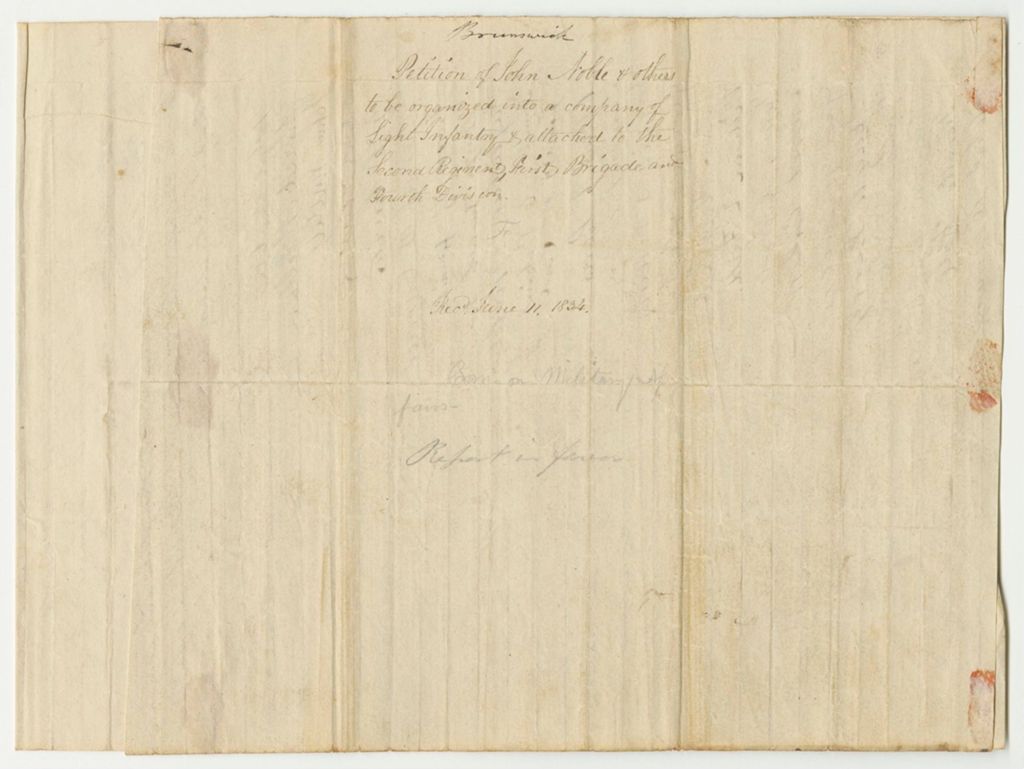 Brunswick
Petition of John Noble & others
to be organized into a company of
Light Infantry & attached to the
Second Regiment, First Brigade and
Fourth Division.
F
Recd June 11, 1834.
Com. on Military af
fairs
Report in favor